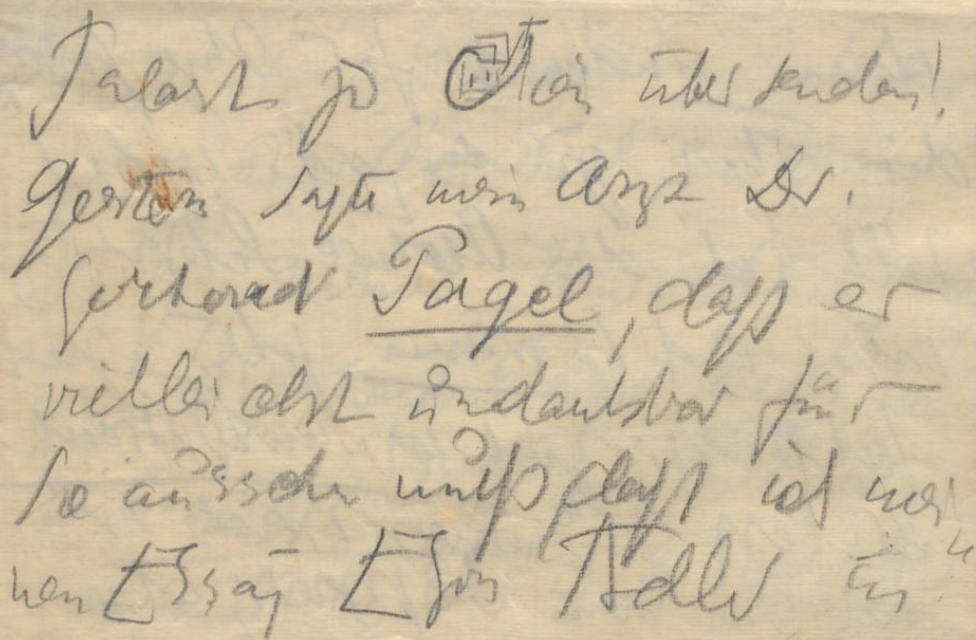 Palast zu übersenden!
Gestern sagte mein Arzt Dr.
Gerhard Pagel, daß er
vielleicht undankbar für
Sie aussehn muß, daß ich mei
nen Essay Egon Adler